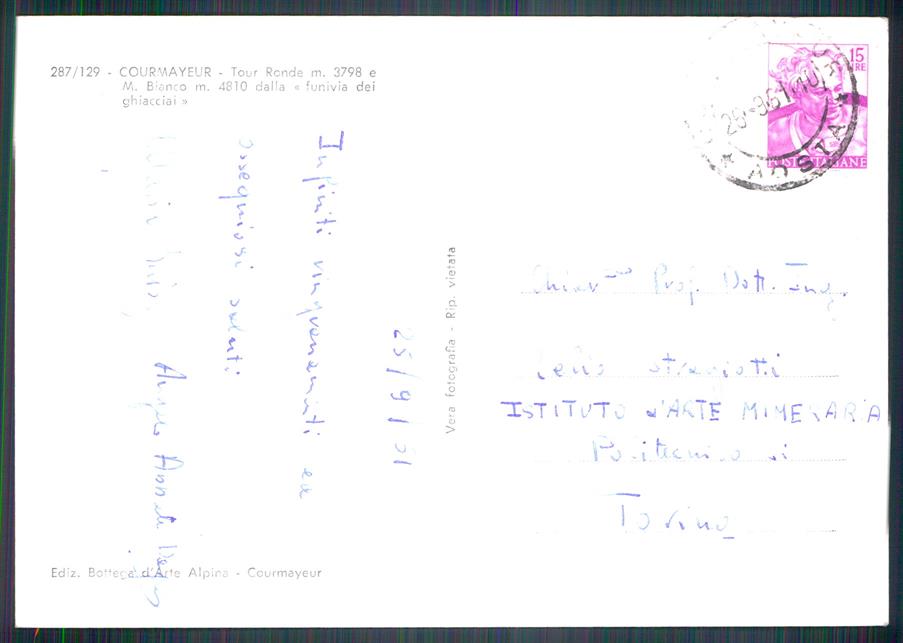 287/129 - COURMAYEUR - Tour Ronde m. 3798 e
M. Bianco m. 4810 dalla « funivia dei
ghiacciai »
15
LIRE
POSTE ITALIANE
AOSTA
Infiniti ringraziamenti ed
ossequiosi saluti
25/9/61
Angelo
Vera fotografia - Rip. vietata
Chiar.mo Prof. Dott. Ing.
Lelio Stragiotti
ISTITUTO d'ARTE MINERARIA
Politecnico di
Torino
Ediz. Bottega d'Arte Alpina - Courmayeur